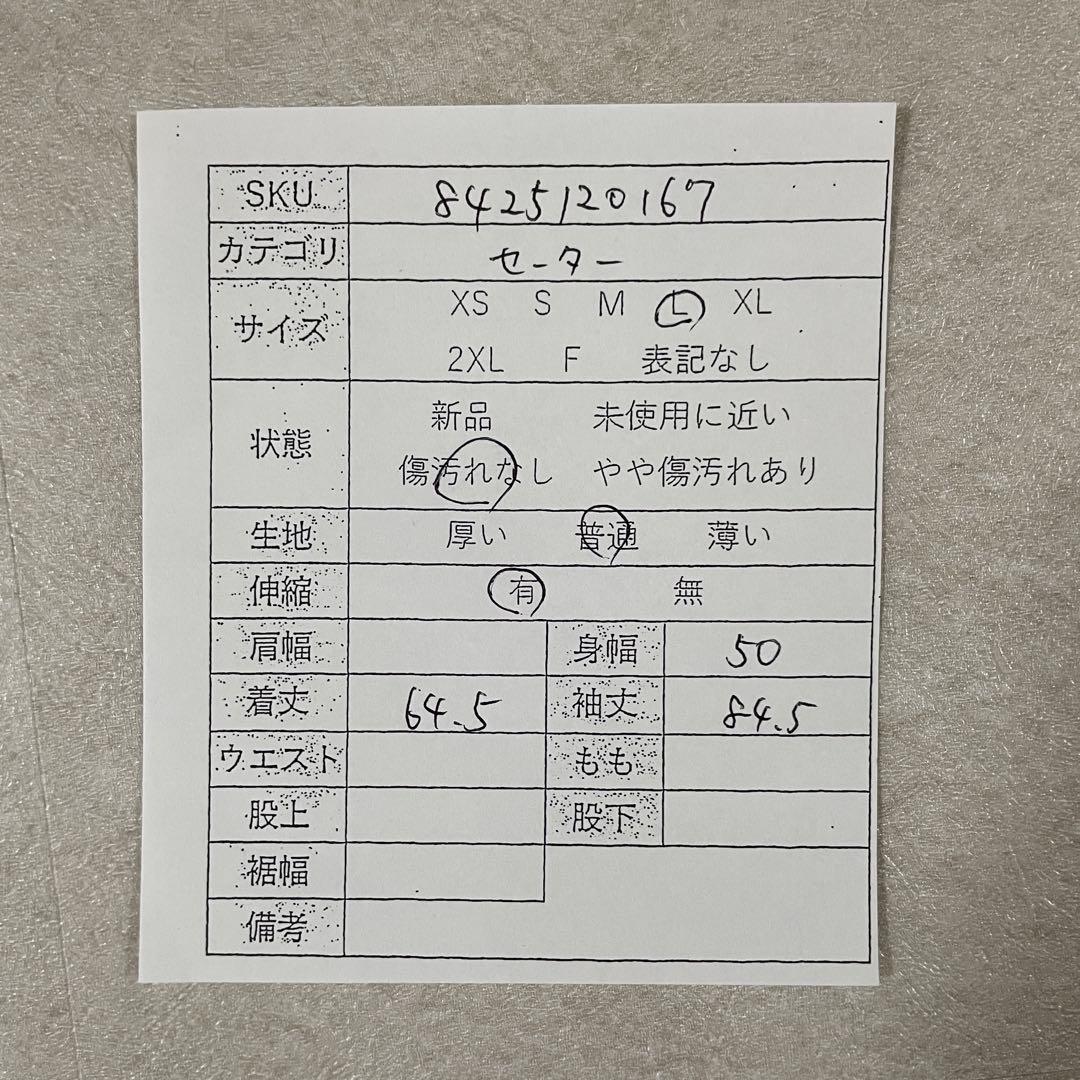 SKU 8425120167
カテゴリ セーター
サイズ XS S M L XL
2XL F 表記なし
状態 新品 未使用に近い
傷汚れなし やや傷汚れあり
生地 厚い 普通 薄い
伸縮 有 無
肩幅 身幅 50
着丈 64.5 袖丈 84.5
ウエスト もも
股上 股下
裾幅
備考